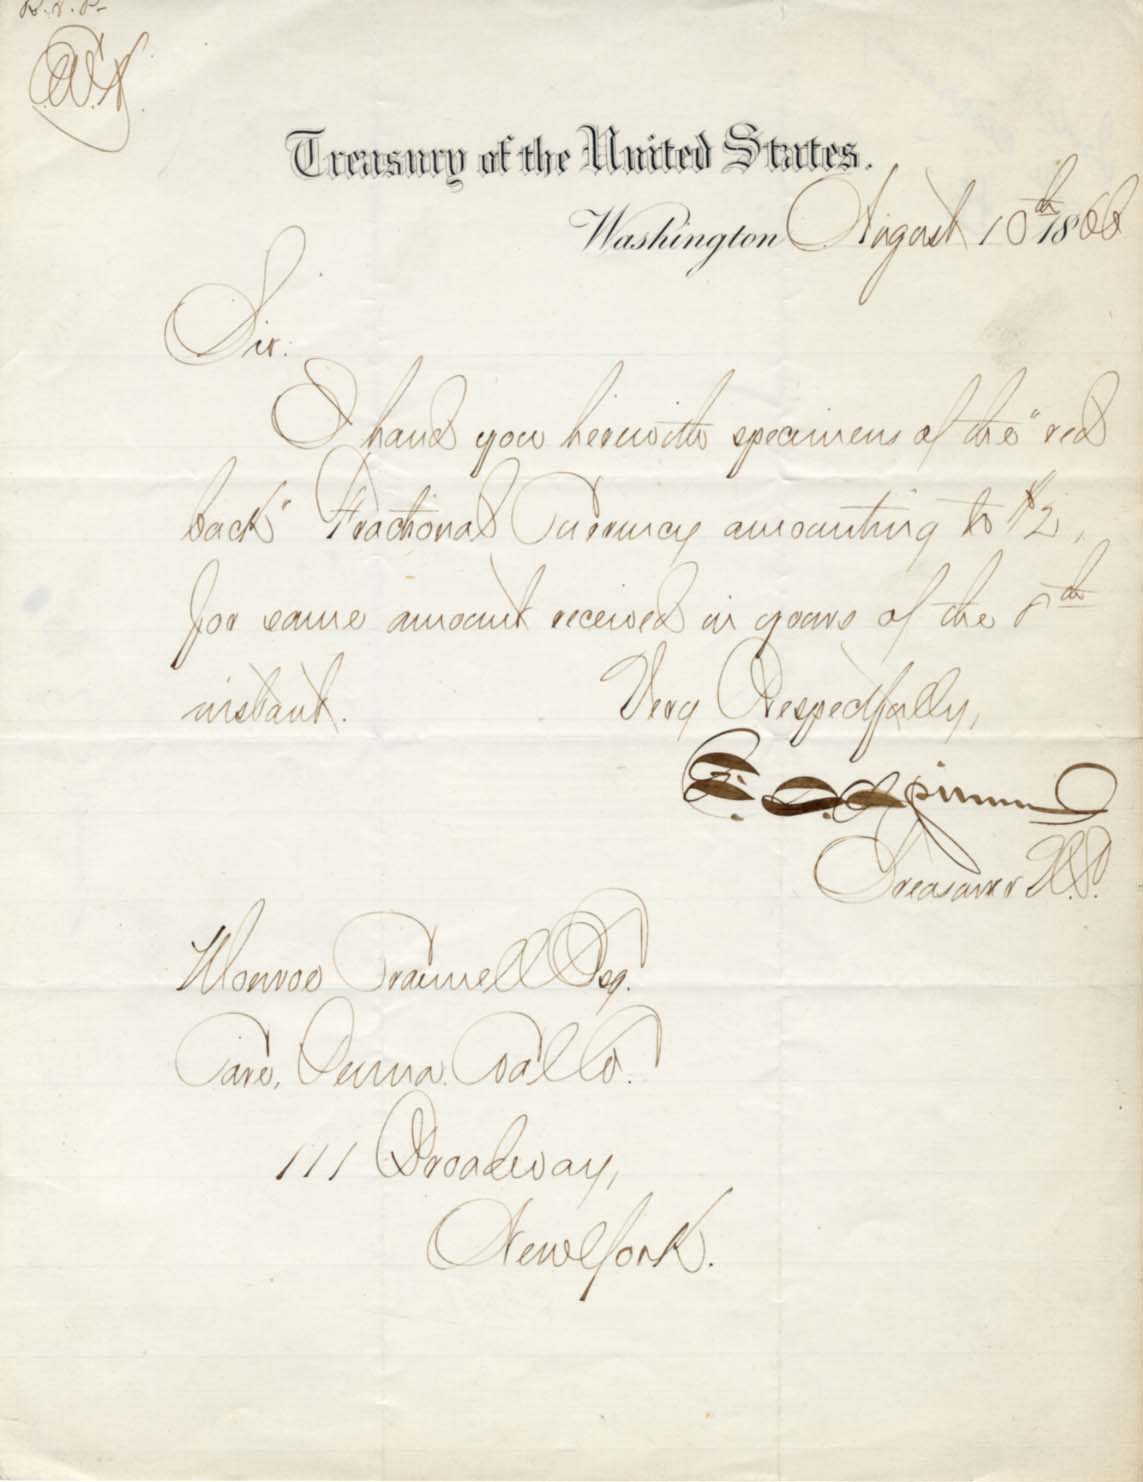 Treasury of the United States.
Washington August 10th 1866
Sir:
I hand you herewith specimens of the "red
back" Fractional Currency amounting to $2,
for same amount received in yours of the 8th
instant. Very Respectfully,
F. E. Spinner
Treasurer U.S.
Monroe Crannell Esq.
Care, Penna. Coal Co.
111 Broadway,
New York.